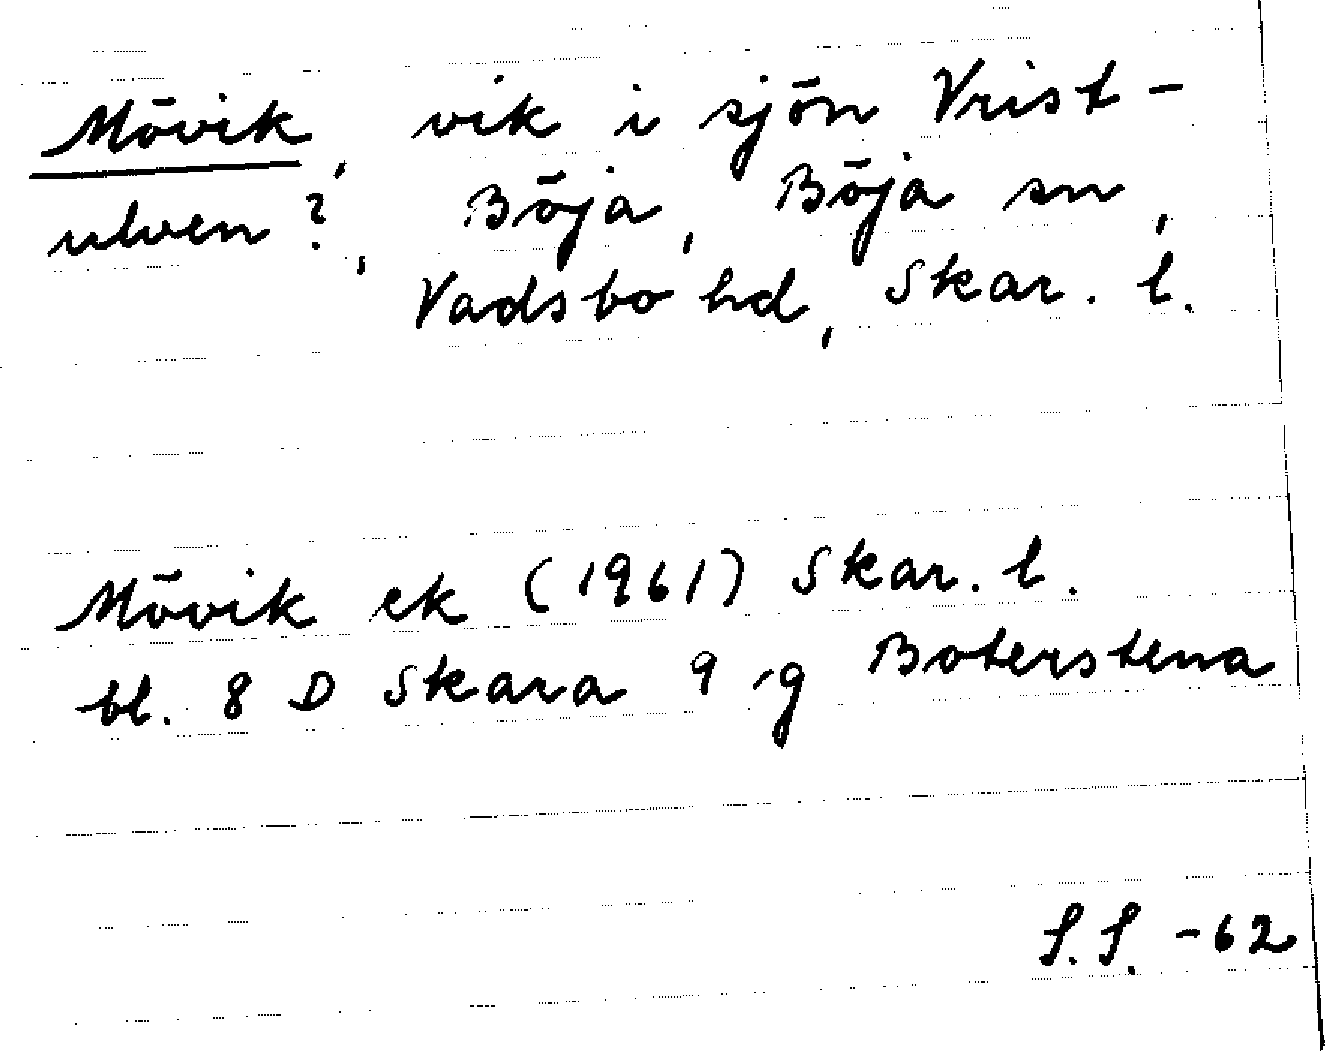 Mövik, vik i sjön Vrist-
ulven?, Böja, Böja sn,
Vadsbo hd, Skar. l.
Mövik ek (1961) Skar. l.
bl. 8 D Skara 9 g Boterstena
S.S. -62